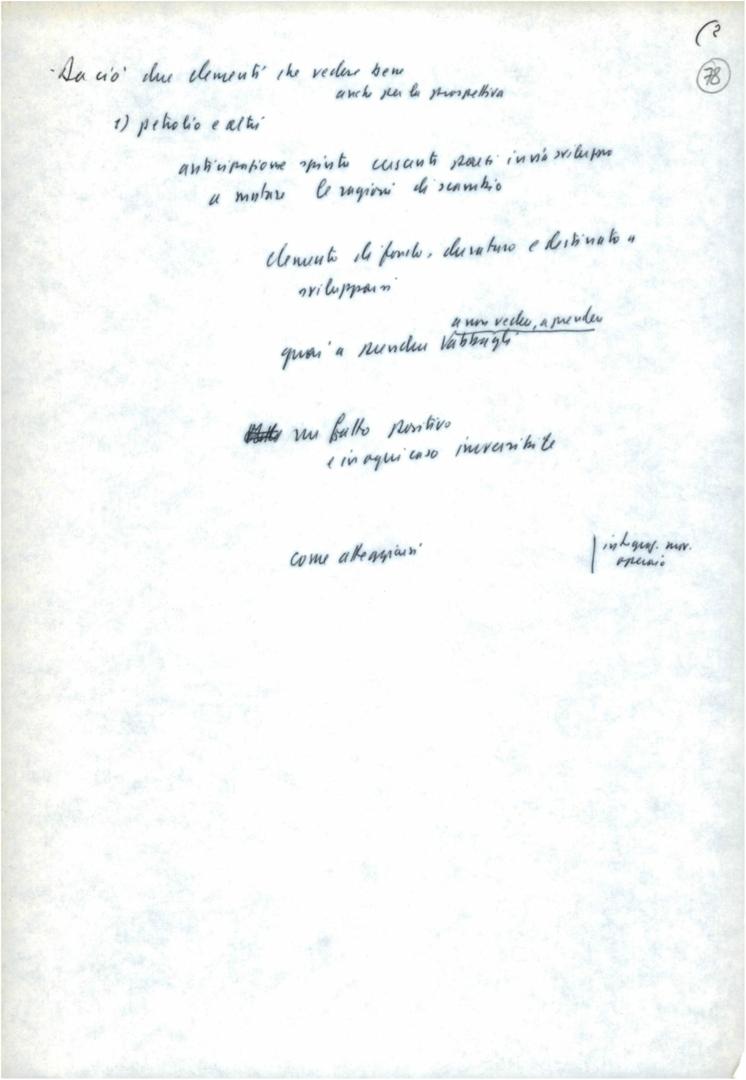 78
- Da ciò due elementi che vedere bene
anche per la prospettiva
1) petrolio e altri
anticipazione spinta crescenti paesi in via sviluppo
a mutare le ragioni di scambio
elemento di fondo, duraturo e destinato a
svilupparsi
a non veder, a prender
guai a prender abbagli
un fatto positivo
e in ogni caso irreversibile
come atteggiarsi
mov.
operaio